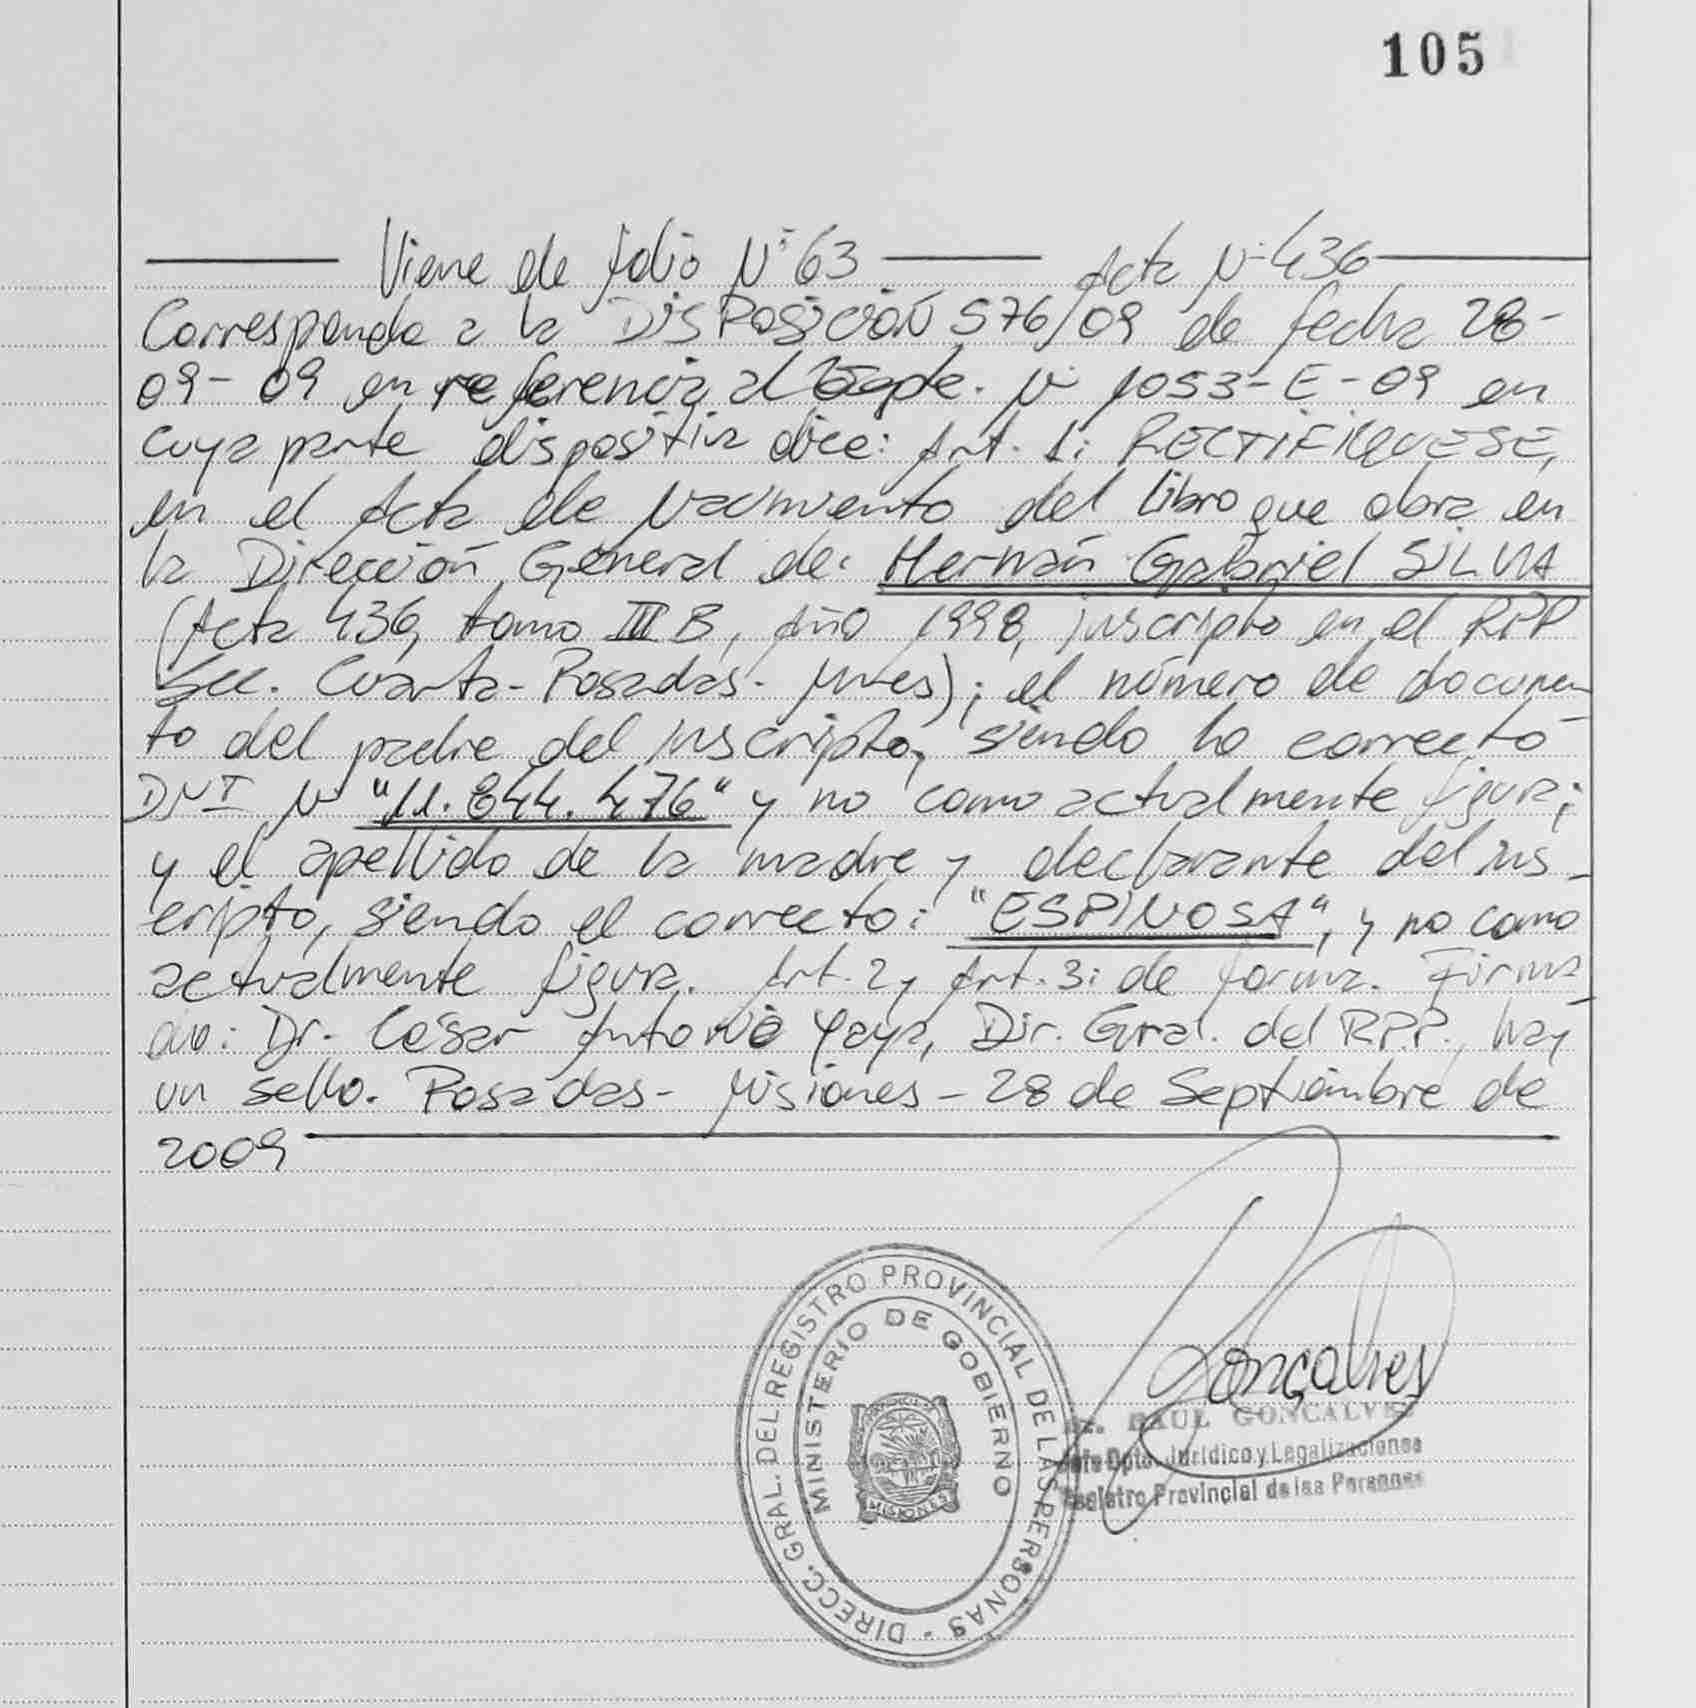 105
Viene de folio Nº 63 Acta Nº 436
Corresponde a la DISPOSICIÓN 576/09 de fecha 28-
09-09 en referencia al Expte. Nº 1053-E-09 en
cuya parte dispositiva dice: Art. 1: RECTIFIQUESE,
en el Acta de Nacimiento del libro que obra en
la Dirección General de: Hernán Gabriel SILVA
(Acta 436, tomo III B, Año 1998, inscripto en el RPP
Sec. Cuarta- Posadas- Mnes); el número de documen-
to del padre del inscripto, siendo lo correcto
DNI Nº "11.844.476" y no como actualmente figura;
y el apellido de la madre y declarante del ins-
cripto, siendo el correcto: "ESPINOSA", y no como
actualmente figura. Art. 2 y Art. 3: de forma. Firma-
do: Dr. César Antonio Yaya, Dir. Gral. del R.P.P., hay
un sello. Posadas- Misiones - 28 de Septiembre de
2009
DIRECC. GRAL. DEL REGISTRO PROVINCIAL DE LAS PERSONAS -
MINISTERIO DE GOBIERNO
MISIONES
Gonçalves
RAUL GONCALVES
Jefe Dpto. Jurídico y Legalizaciones
Registro Provincial de las Personas